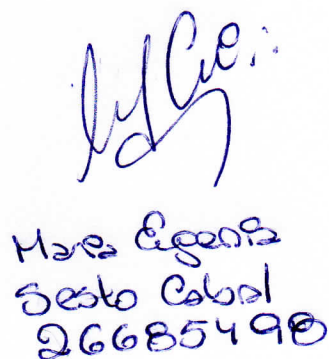 Maria Eugenia
Sesto Cabral
26685498